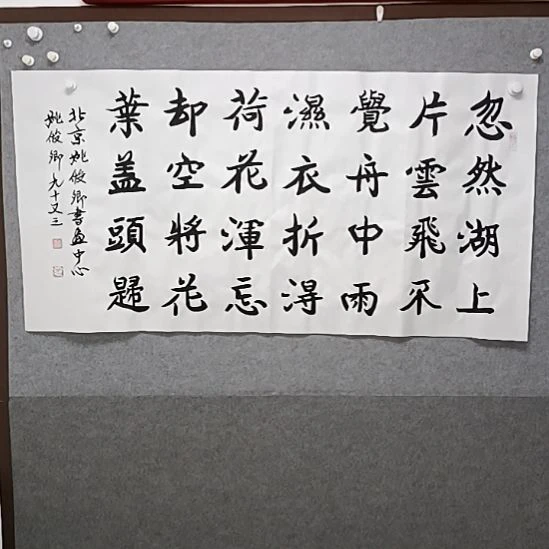 忽然湖上
片雲飛不
覺舟中雨
濕衣折得
荷花渾忘
却空將花
葉蓋頭歸
北京姚俊卿書画中心
姚俊卿九十又三